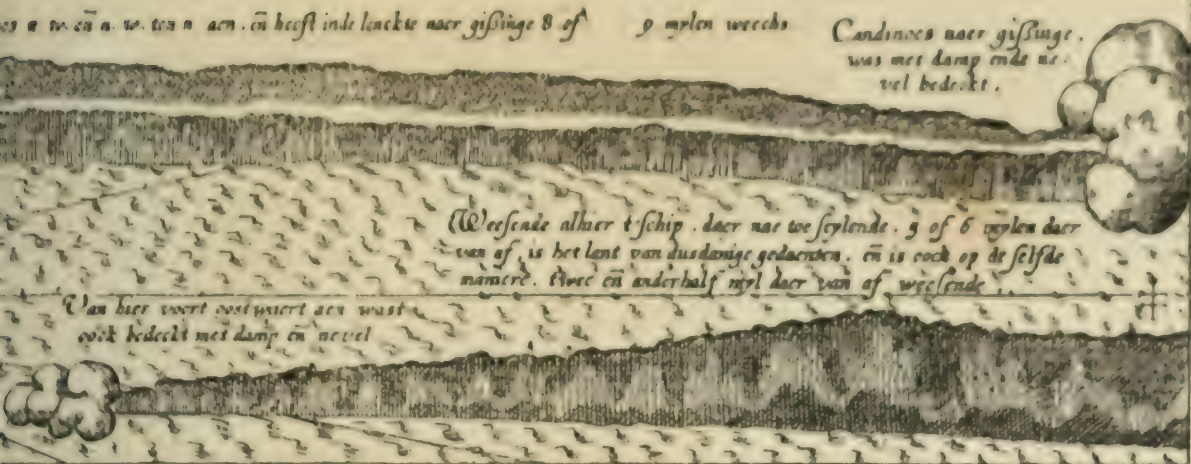 n. w. eñ n. w. ten n. aen. eñ heeft inde lenckte naer gißinge 8 of 9 mylen weechs
Candinoes naer gißinge.
was met damp ende ne-
vel bedeckt.
Weesende alhier t'schip. daer nae toe seylende. 5 of 6 mylen daer
van af, is het lant van dusdanige gedaenten. eñ is oock op de selfde
maniere. twee eñ anderhalf myl daer van af weesende
Van hier voort oostwaert aen wast
oock bedeckt met damp eñ nevel